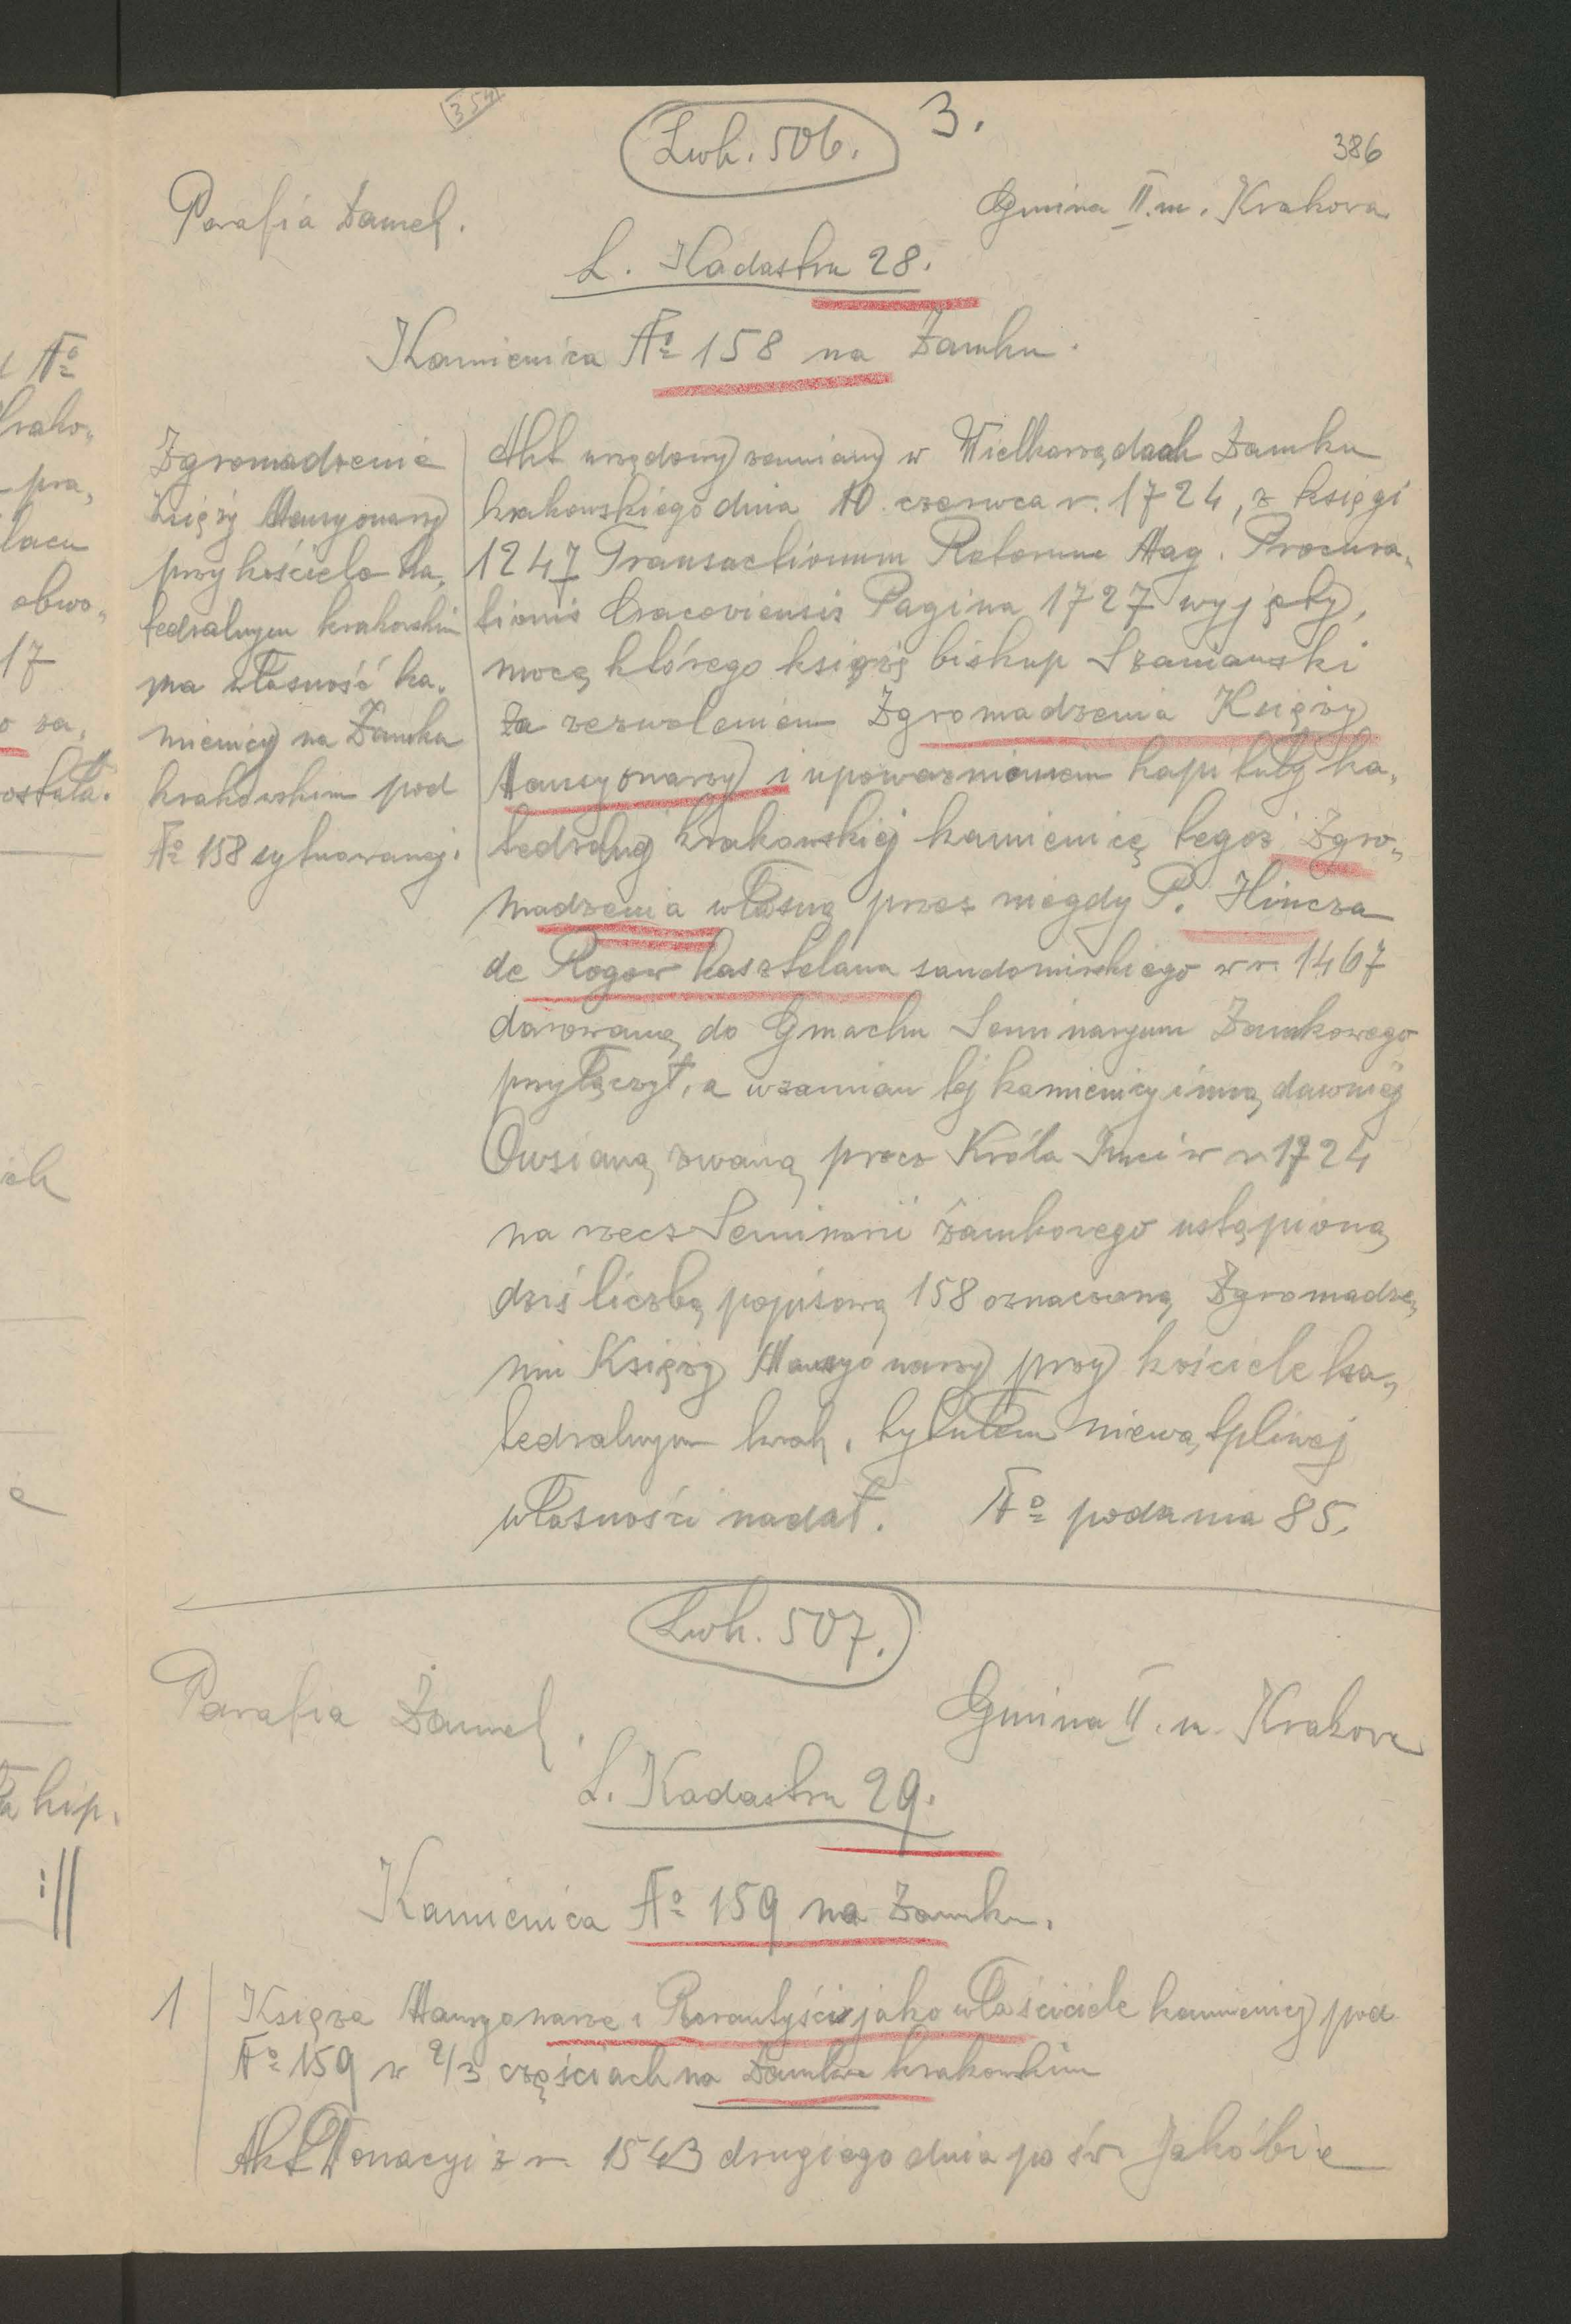 354
Lwh. 506.
3.
386
Parafia Zamek.
Gmina II. m. Krakowa
L. Kadastru 28.
Kamienica No 158 na Zamku.
Zgromadzenie
Księży Mansyonarzy
przy kościele ka„
tedralnym krakowskim
ma własność ka„
mienicy na Zamku
krakowskim pod
No 158 sytuowanej.
Akt urzędowy zamiany w Wielkorządach Zamku
krakowskiego dnia 10. czerwca r. 1724, z księgi
1247 Transactionum Relationum Mag. Procura„
tionis Cracoviensis Pagina 1727 wyjęty,
mocą którego książę biskup Szaniawski
za zezwoleniem Zgromadzenia Księży
Mansyonarzy i upoważnieniem kapituły ka„
tedralnej krakowskiej kamienicę tegoż Zgro„
madzenia własną przez niegdy P. Hincza
de Rogow kasztelana sandomirskiego w r. 1467
darowaną do Gmachu Seminaryum Zamkowego
przyłączył, a wzamian tej kamienicy inną dawniej
Owsianą zwaną przez Króla Jmci w r 1724
na rzecz Seminarii zamkowego ustąpioną
dziś liczbą popisową 158 oznaczoną Zgromadze„
niu Księży Mansyonarzy przy kościele ka„
tedralnym krak. tytułem niewątpliwej
własności nadał. No podania 85.
Lwh. 507.
Parafia Zamek.
Gmina II. m. Krakowa
L. Kadastru 29.
Kamienica No 159 na Zamku.
1
Księża Mansyonarze i Rorantyści jako właściciele kamienicy pod
No 159 w 2/3 częściach na Zamku krakowskim
Akt Donacyi z r. 1543 drugiego dnia po św. Jakóbie